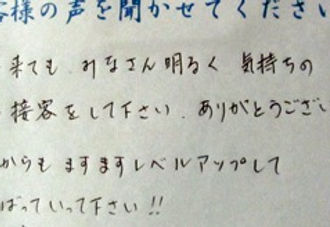 客様の声を聞かせてください
来ても、みなさん明るく 気持ちの
接客をして下さい。ありがとうござい
からも ますますレベルアップして
ばっていって下さい!!